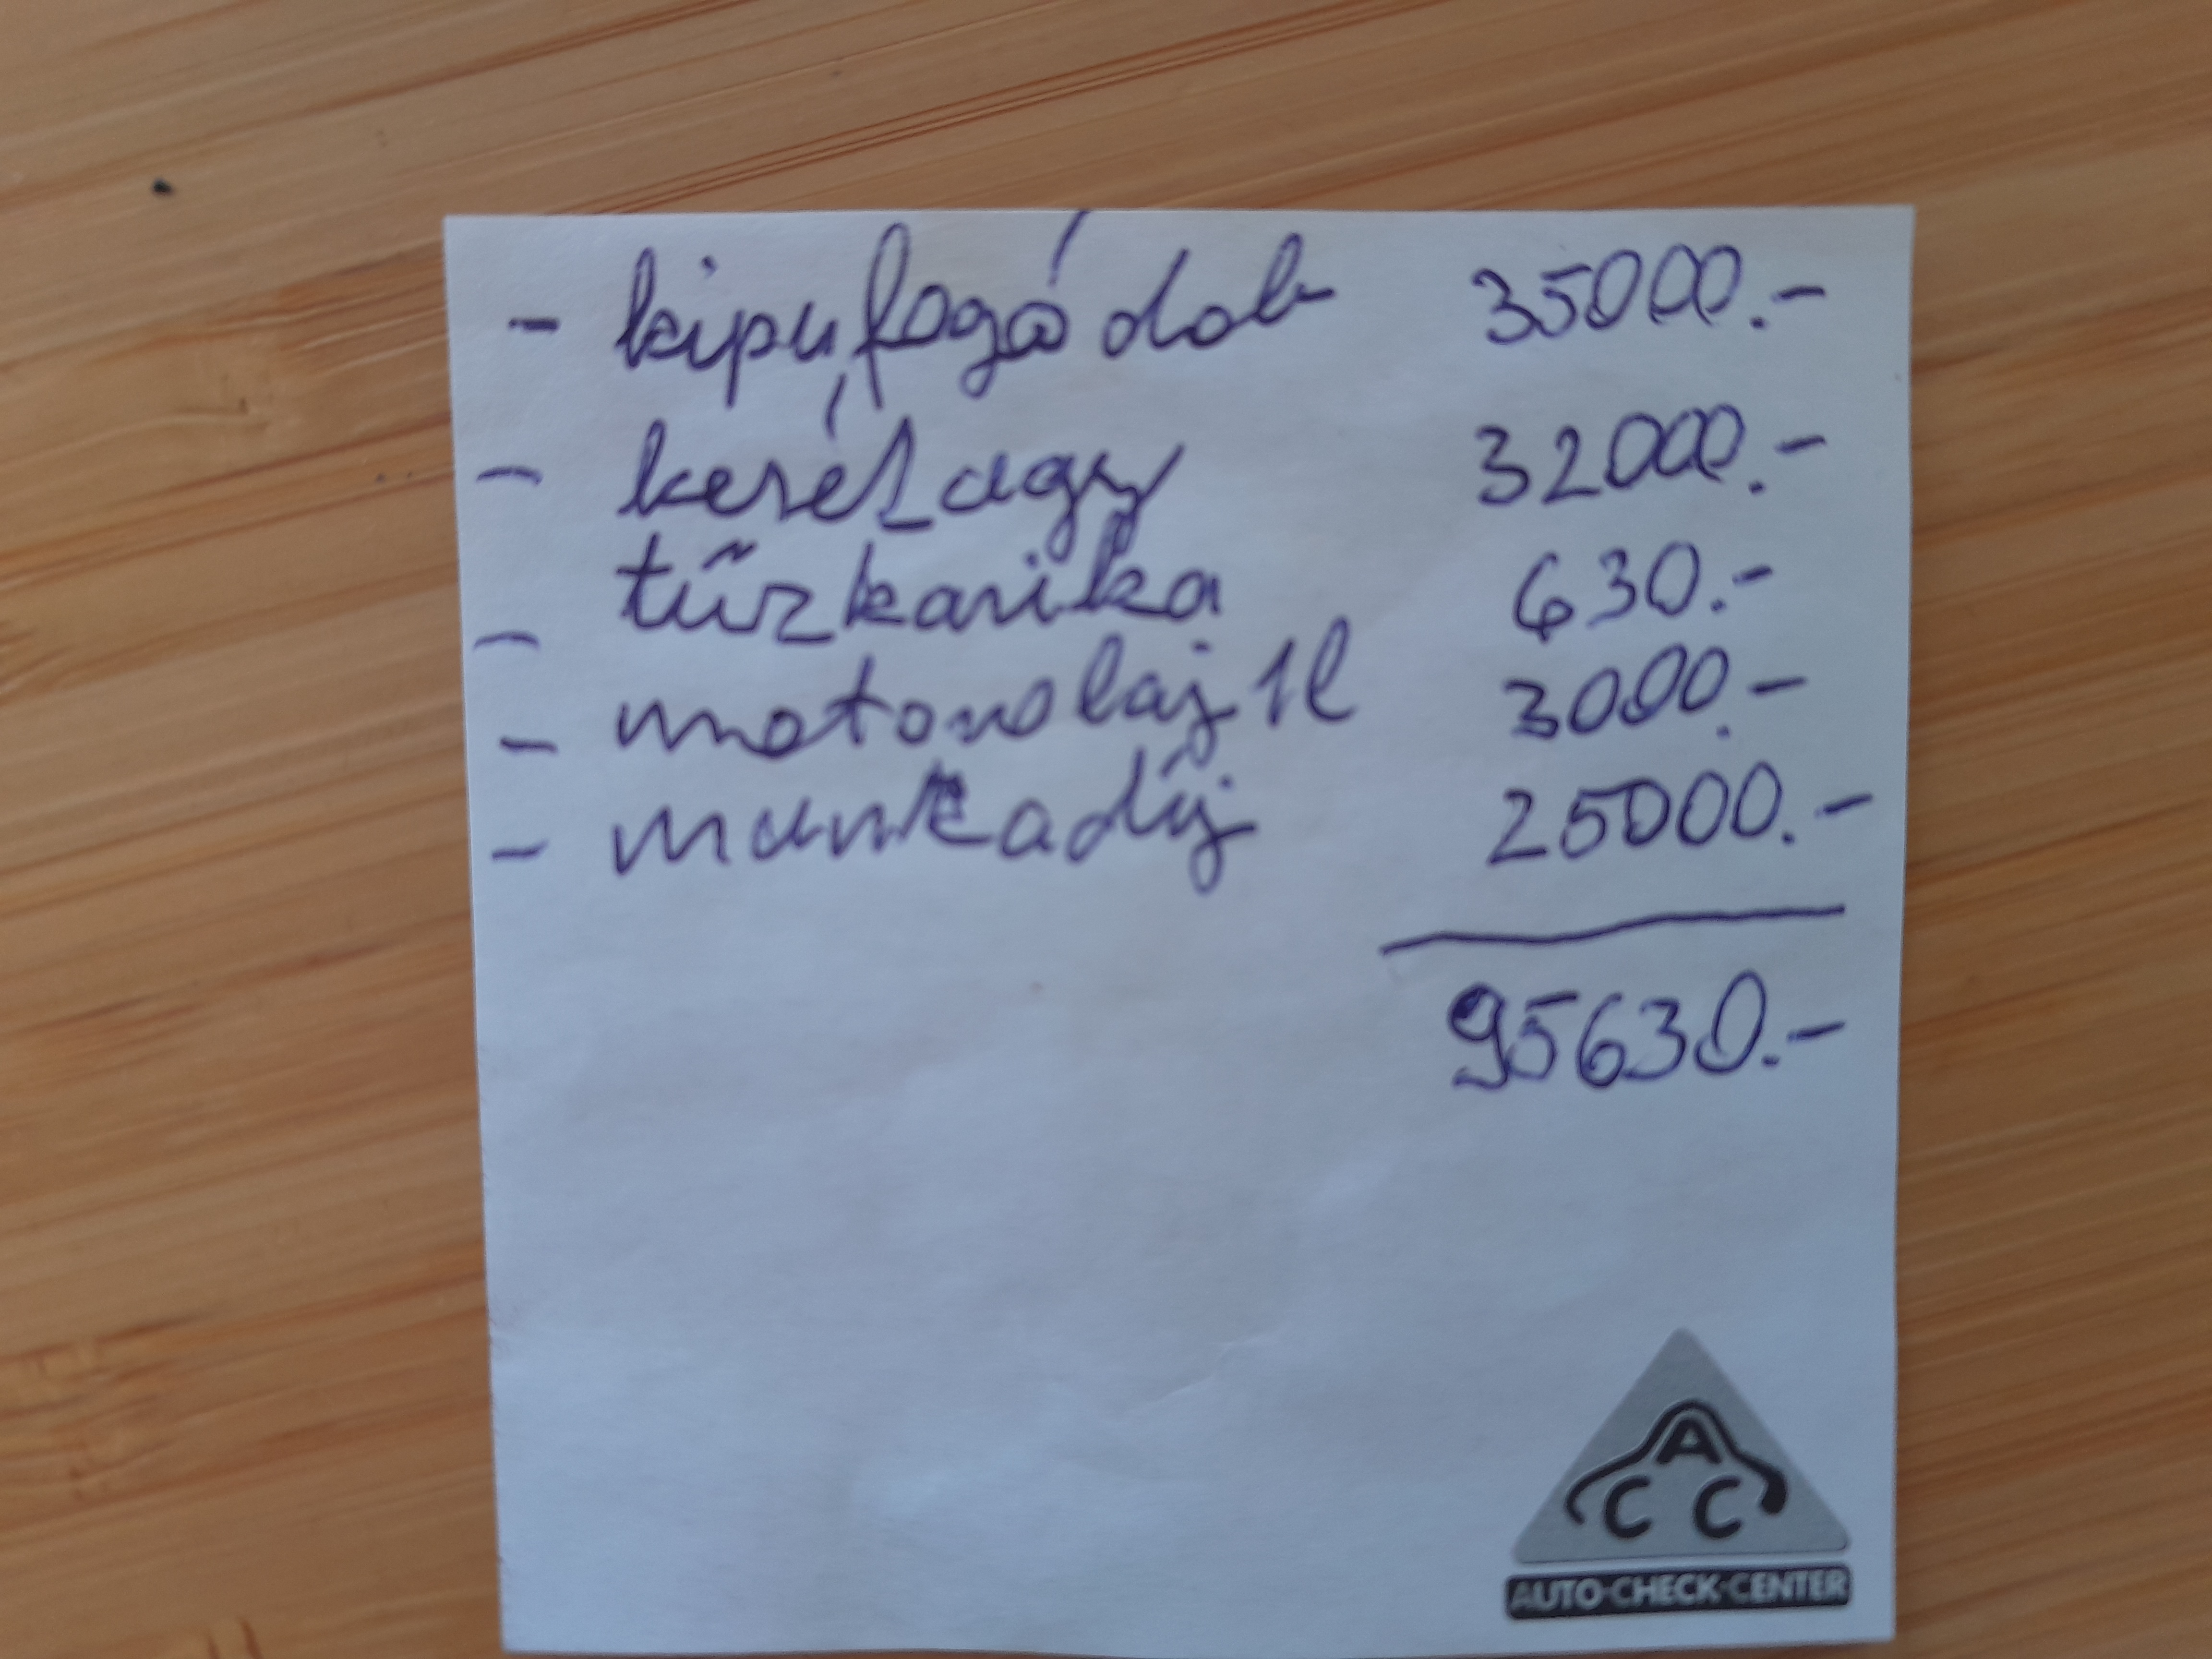 - kipufogó dob 35000.-
- kerékagy 32000.-
- tűzkarika 630.-
- motorolaj 1l 3000.-
- munkadíj 25000.-
95630.-
A
C C
AUTO-CHECK-CENTER